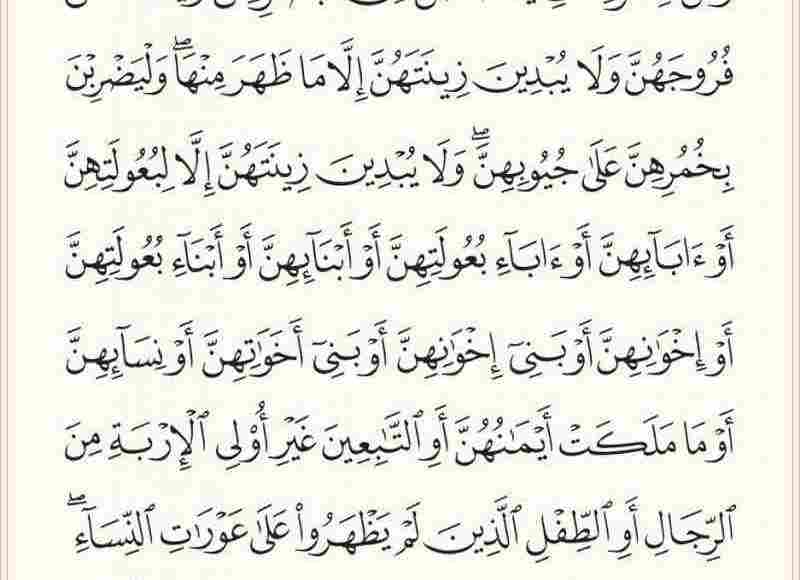 فُرُوجَهُنَّ وَلَا يُبۡدِينَ زِينَتَهُنَّ إِلَّا مَا ظَهَرَ مِنۡهَاۖ وَلۡيَضۡرِبۡنَ
بِخُمُرِهِنَّ عَلَىٰ جُيُوبِهِنَّۖ وَلَا يُبۡدِينَ زِينَتَهُنَّ إِلَّا لِبُعُولَتِهِنَّ
أَوۡ ءَابَآئِهِنَّ أَوۡ ءَابَآءِ بُعُولَتِهِنَّ أَوۡ أَبۡنَآئِهِنَّ أَوۡ أَبۡنَآءِ بُعُولَتِهِنَّ
أَوۡ إِخۡوَٰنِهِنَّ أَوۡ بَنِيٓ إِخۡوَٰنِهِنَّ أَوۡ بَنِيٓ أَخَوَٰتِهِنَّ أَوۡ نِسَآئِهِنَّ
أَوۡ مَا مَلَكَتۡ أَيۡمَٰنُهُنَّ أَوِ ٱلتَّٰبِعِينَ غَيۡرِ أُوْلِي ٱلۡإِرۡبَةِ مِنَ
ٱلرِّجَالِ أَوِ ٱلطِّفۡلِ ٱلَّذِينَ لَمۡ يَظۡهَرُواْ عَلَىٰ عَوۡرَٰتِ ٱلنِّسَآءِۖ